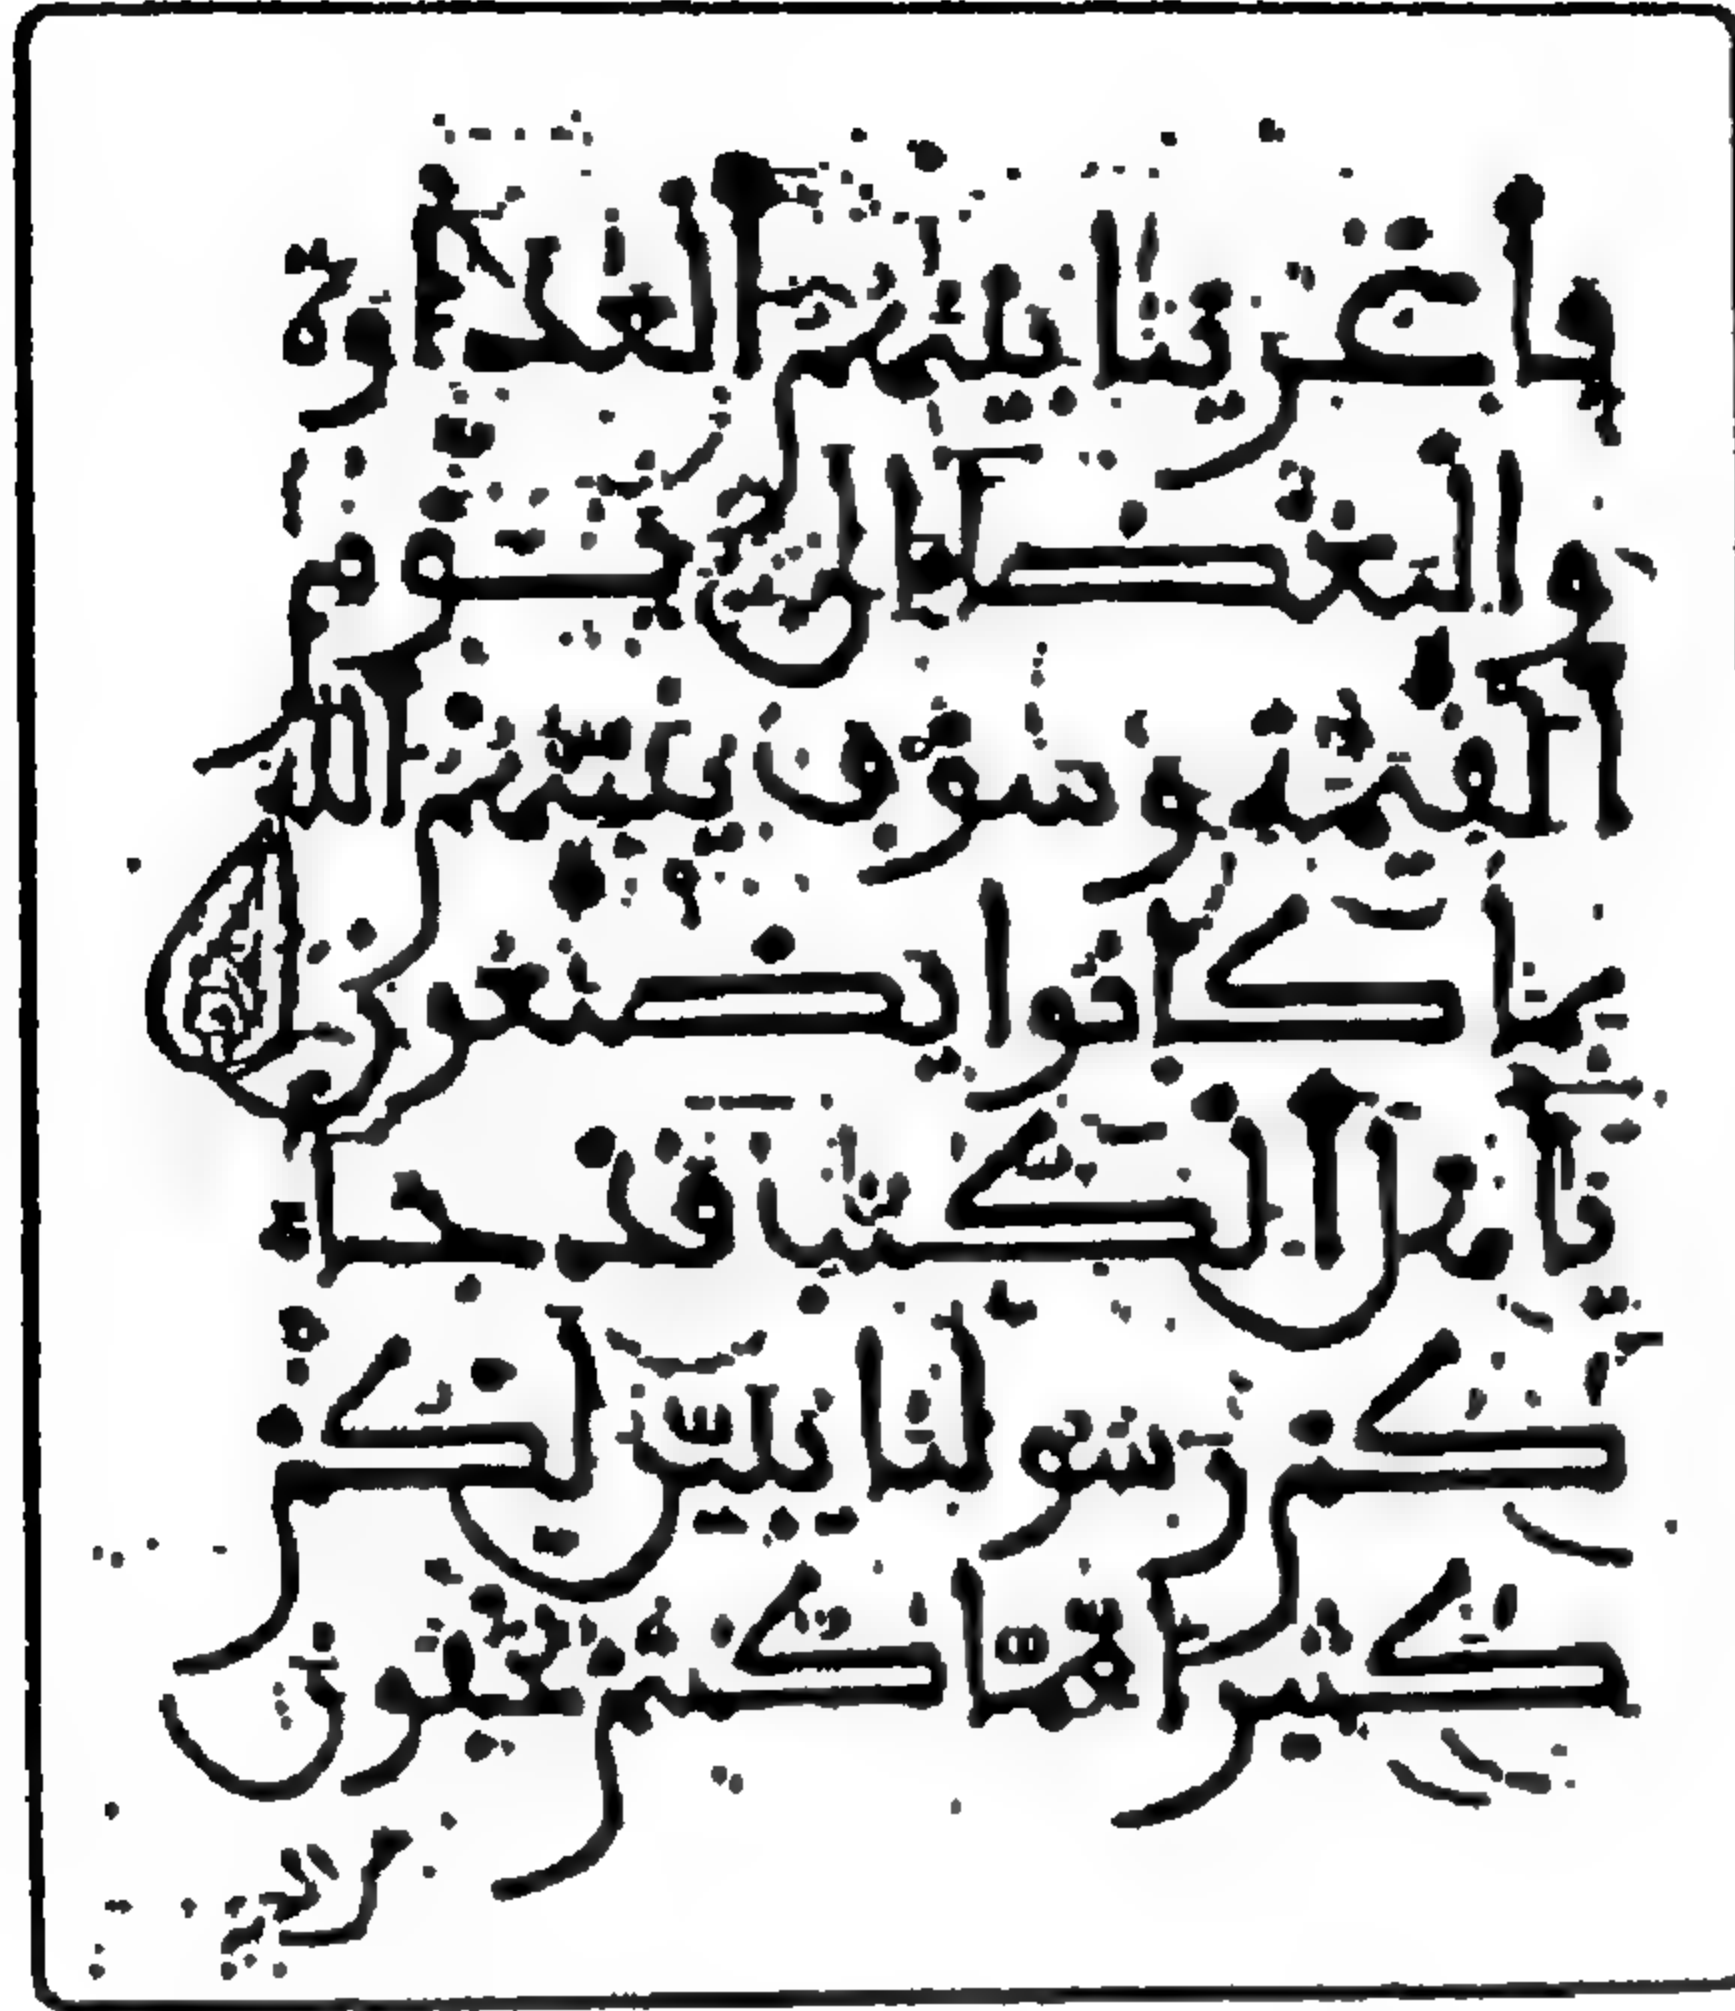 فاغرينا بينهم العداوة
والبغضا الى يوم
القيمة وسوف ينبئهم الله
بما كانوا يصنعون
يا اهل الكتب قد جا
كم رسولنا يبين لكم
كثيرا مما كنتم تخفون